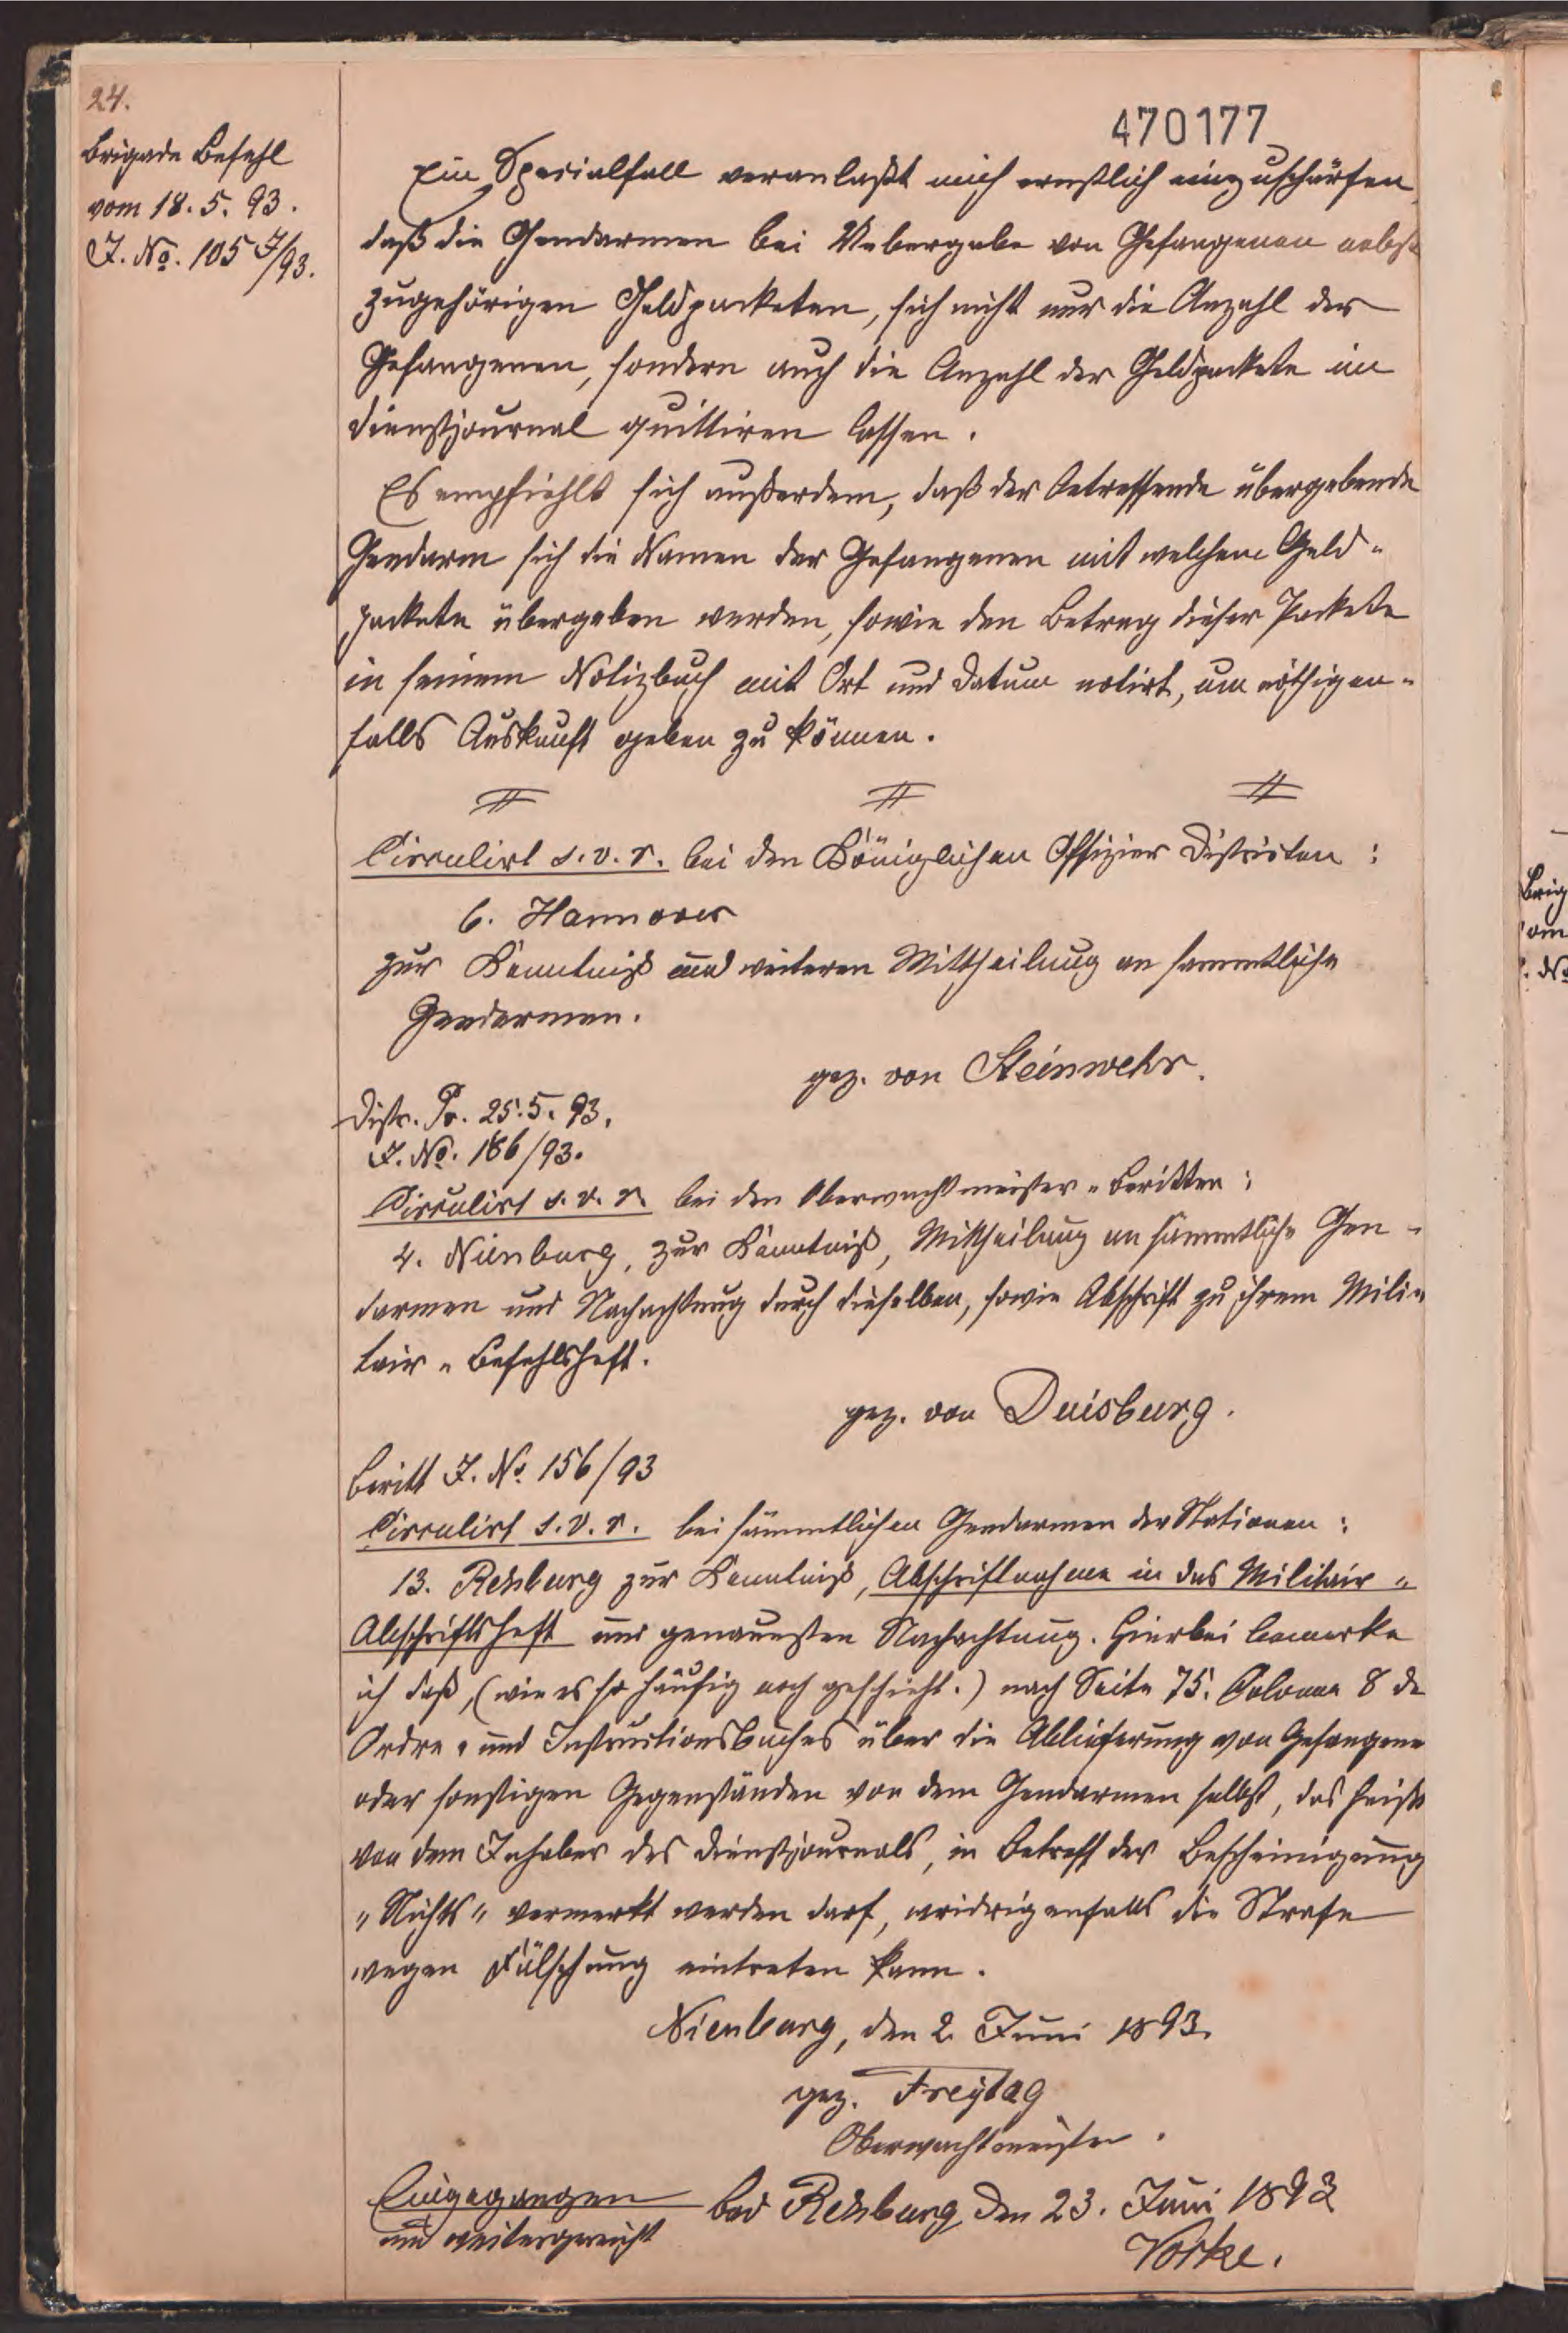 24.
470177
Brigade Befehl
vom 18.5.93.
J. No. 105 J/93.
Ein Specialfall veranlaßt mich ernstlich einzuschärfen,
daß die Gendarmen bei Uebergabe von Gefangenen nebst
zugehörigen Geldpacketen, sich nicht nur die Anzahl der
Gefangenen, sondern auch die Anzahl der Geldpackete im
Dienstjournal quittiren lassen.
Es empfiehlt sich außerdem, daß der betreffende übergebende
Gendarm sich die Namen der Gefangenen mit welchen Geld-
packete übergeben werden, sowie den Betrag dieser Packete
in seinem Notizbuch mit Ort und Datum notirt, um nöthigen-
falls Auskunft geben zu können.
Circulirt s.v.r. bei den Königlichen Offizier Distrikten:
6. Hannover
zur Kenntniß und weiteren Mittheilung an sämmtliche
Gendarmen.
gez. von Steinwehr.
Distr. Pr. 25.5.93.
J. No. 186/93.
Circulirt s.v.r. bei den Oberwachtmeister-Beritten:
4. Nienburg, zur Kenntniß, Mittheilung an sämmtliche Gen-
darmen und Nachachtung durch dieselben, sowie Abschrift zu ihrem Mili-
tair-Befehlsheft.
gez. von Duisburg.
Beritt J. No. 156/93
Circulirt s.v.r. bei sämmtlichen Gendarmen der Stationen:
13. Rehburg zur Kenntniß, Abschriftnahme in das Militair-
Abschriftsheft und genauesten Nachachtung. Hierbei bemerke
ich daß, (wie es so häufig noch geschieht.) nach Seite 75. Colonne 8 de
Ordre- und Instructionsbuches über die Ablieferung von Gefangene
oder sonstigen Gegenständen von dem Gendarmen selbst, das heißt
von dem Inhaber des Dienstjournals, in Betreff der Bescheinigung
"Nichts" vermerkt werden darf, widrigenfalls die Strafe
wegen Fälschung eintreten kann.
Nienburg, den 2. Juni 1893.
gez. Freytag
Oberwachtmeister.
Eingegangen
und weitergereicht
Bad Rehburg den 23. Juni 1893
Vorke.
Brig
vom
J. No